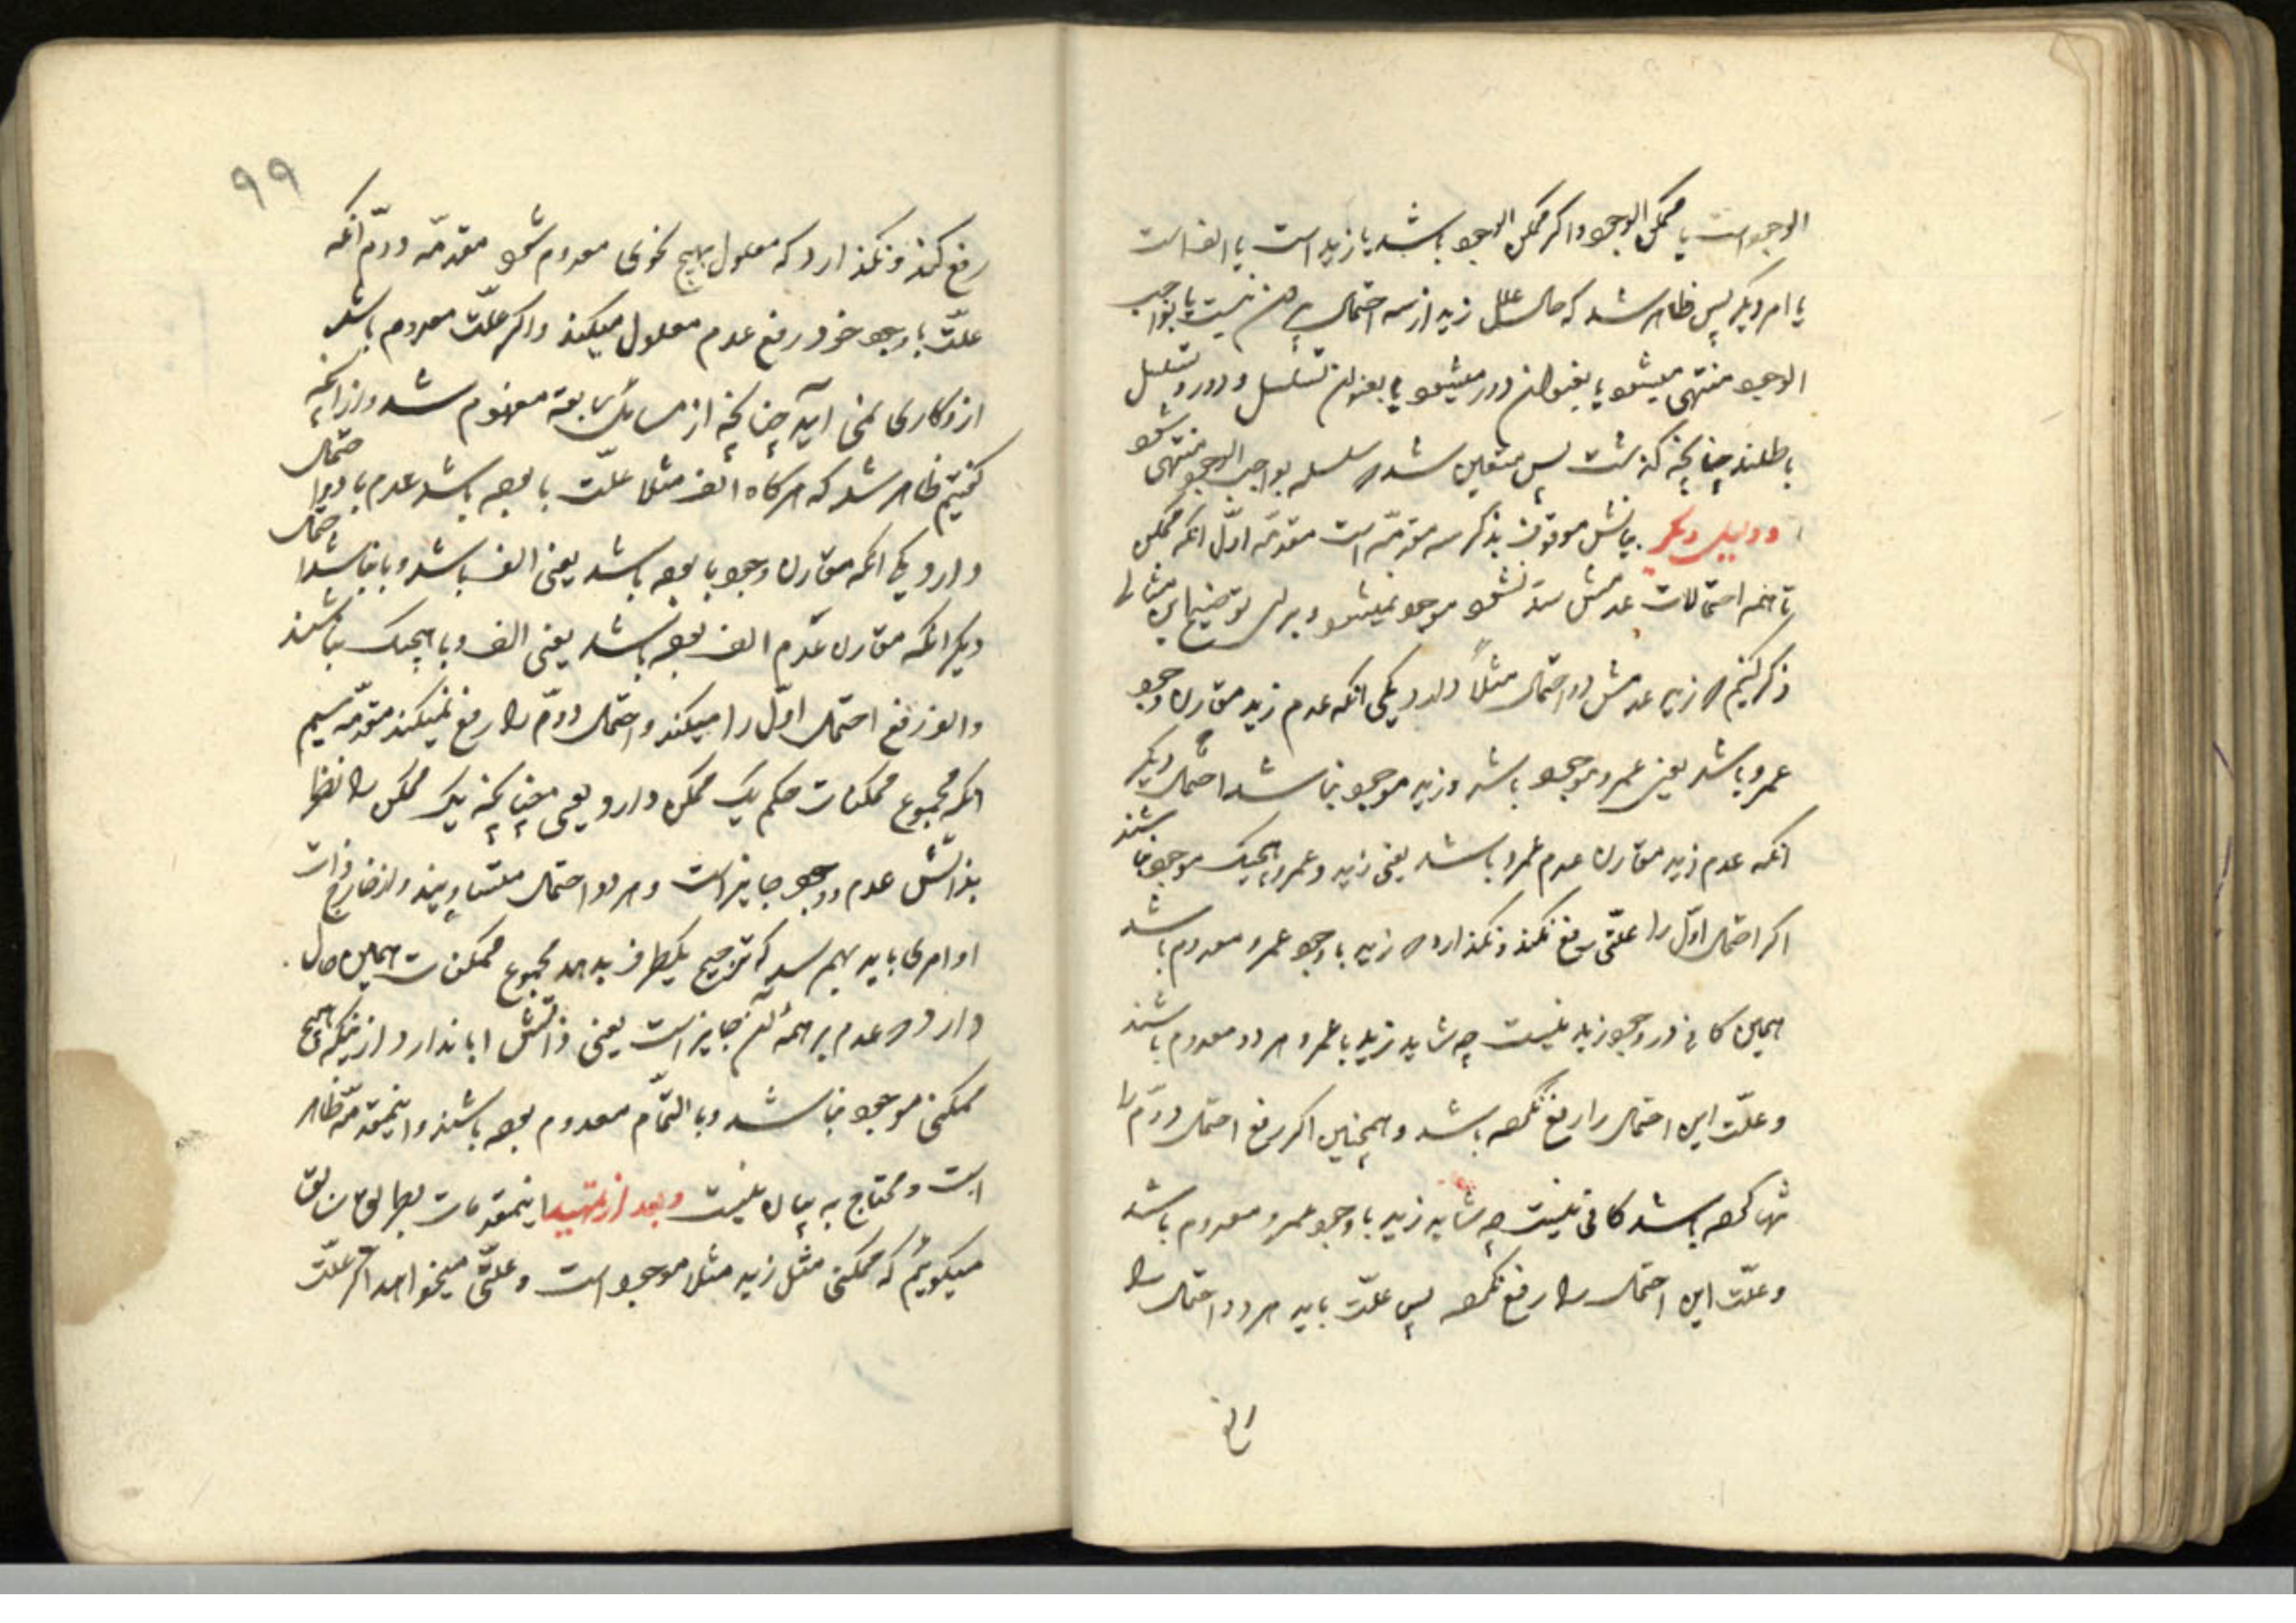 الوجود است یا ممکن الوجود و اگر ممکن الوجود باشد یا زید است یا الف است
یا امر دیگر پس ظاهر شد که حال علل زید از سه احتمال بیرون نیست یا بواجب
الوجود منتهی میشود یا بعنوان دور میشود یا بعنوان تسلسل و دور و تسلسل
باطلند چنانچه گذشت پس متعین شد که سلسله بواجب الوجود منتهی شود
و دلیل دیگر بیانش موقوف بذکر سه مقدمه است مقدمه اول آنکه ممکن
تا همه احتمالات عدمش بسته نشود موجود نمیشود و برای توضیح این مثالی
ذکر کنیم که زید عدمش دو احتمال مثلاً دارد یکی آنکه عدم زید مقارن وجود
عمرو باشد یعنی عمرو موجود باشد و زید موجود نباشد احتمال دیگر
آنکه عدم زید مقارن عدم عمرو باشد یعنی زید و عمرو هیچیک موجود نباشند
اگر احتمال اول را علتی رفع نکند و نگذارد که زید با وجود عمرو معدوم باشد
همین کافی در وجود زید نیست چه شاید زید با عمرو هر دو معدوم باشند
و علت این احتمال را رفع نکرده باشد و همچنین اگر رفع احتمال دوم را
تنها کرده باشد کافی نیست چه شاید زید با وجود عمرو معدوم باشد
و علت این احتمال را رفع نکرده پس علت باید هر دو احتمال را
رفع
۹۹
رفع کند و نگذارد که معلول بهیچ نحوی معدوم شود مقدمه دوم آنکه
علت با وجود خود رفع عدم معلول میکند و اگر علت معدوم باشد
ازو کاری نمی آید چنانچه از مسایل سابقه مفهوم شد و از آنچه
گفتیم ظاهر شد که هرگاه الف مثلا علت با بوده باشد عدم با دو احتمال
دارد یکی آنکه مقارن وجود با بوده باشد یعنی الف باشد و با نباشد احتمال
دیگر آنکه مقارن عدم الف بوده باشد یعنی الف و با هیچیک نباشند
و الف رفع احتمال اول را میکند و احتمال دوم را رفع نمیکند مقدمه سیم
آنکه مجموع ممکنات حکم یک ممکن دارد یعنی چنانچه یک ممکن را نظر
بذاتش عدم و وجود جایز است و هر دو احتمال متساویند و از خارج ذات
او امری باید بهم رسد که ترجیح یکطرف بدهد مجموع ممکنات همین حال
دارد که عدم بر همه آن جایز است یعنی ذاتش ابا ندارد از اینکه هیچ
ممکنی موجود نباشد و بالتمام معدوم بوده باشند و اینمقدمه ظاهر
است و محتاج به بیان نیست و بعد از تمهید اینمقدمات بطریق سابق
میگوییم که ممکنی مثل زید مثلا موجود است و علتی میخواهد اگر علت